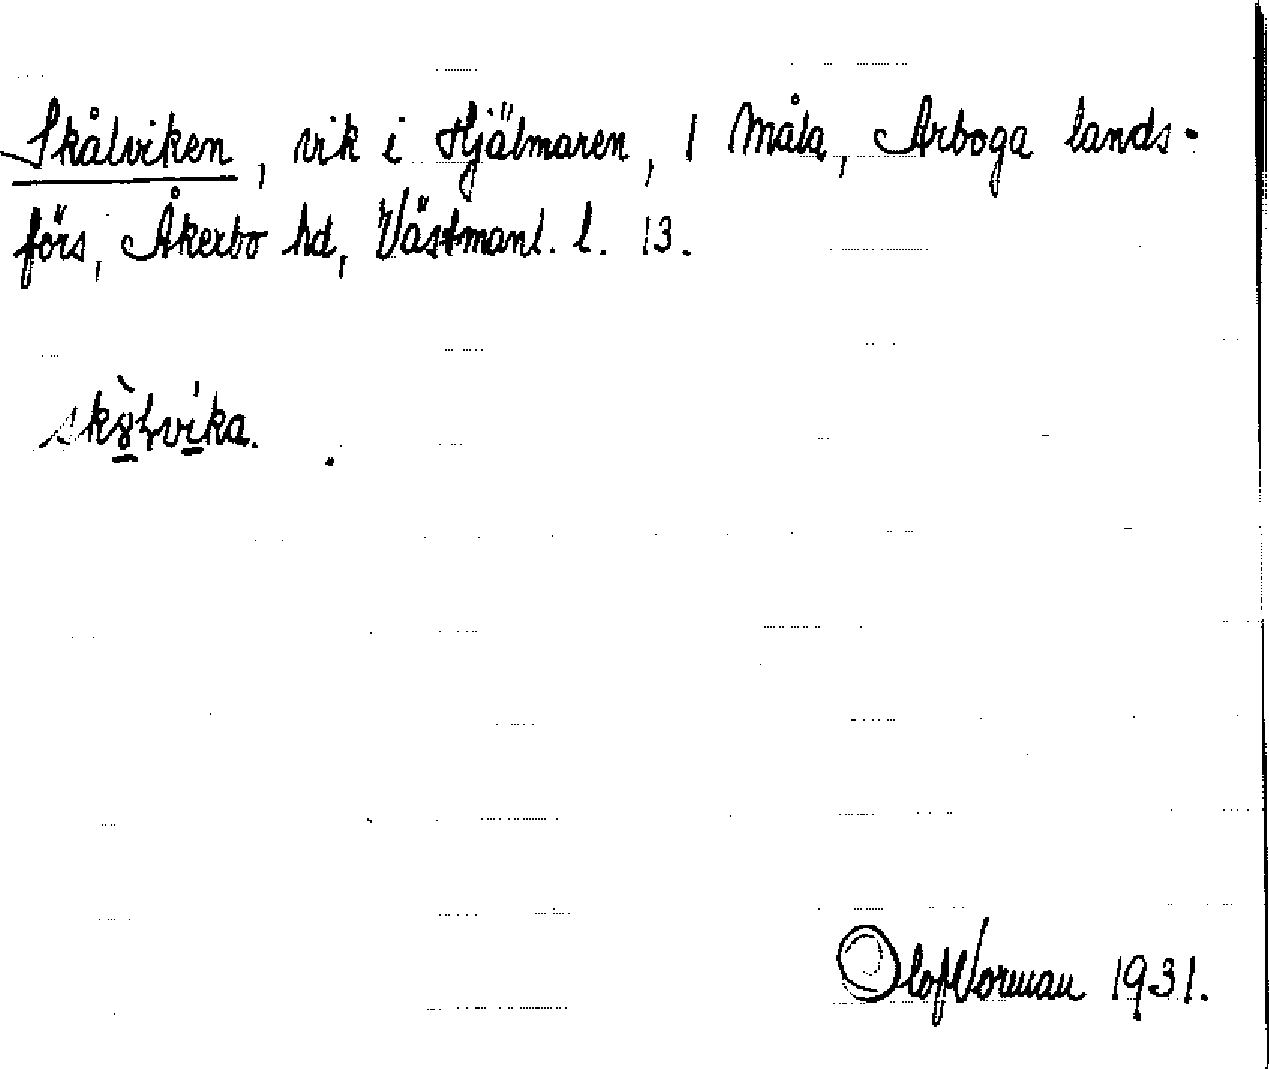 Skålviken, vik i Hjälmaren, 1 Måla, Arboga lands-
förs, Åkerbo hd, Västmanl. l. 13.
Olof Vorman 1931.